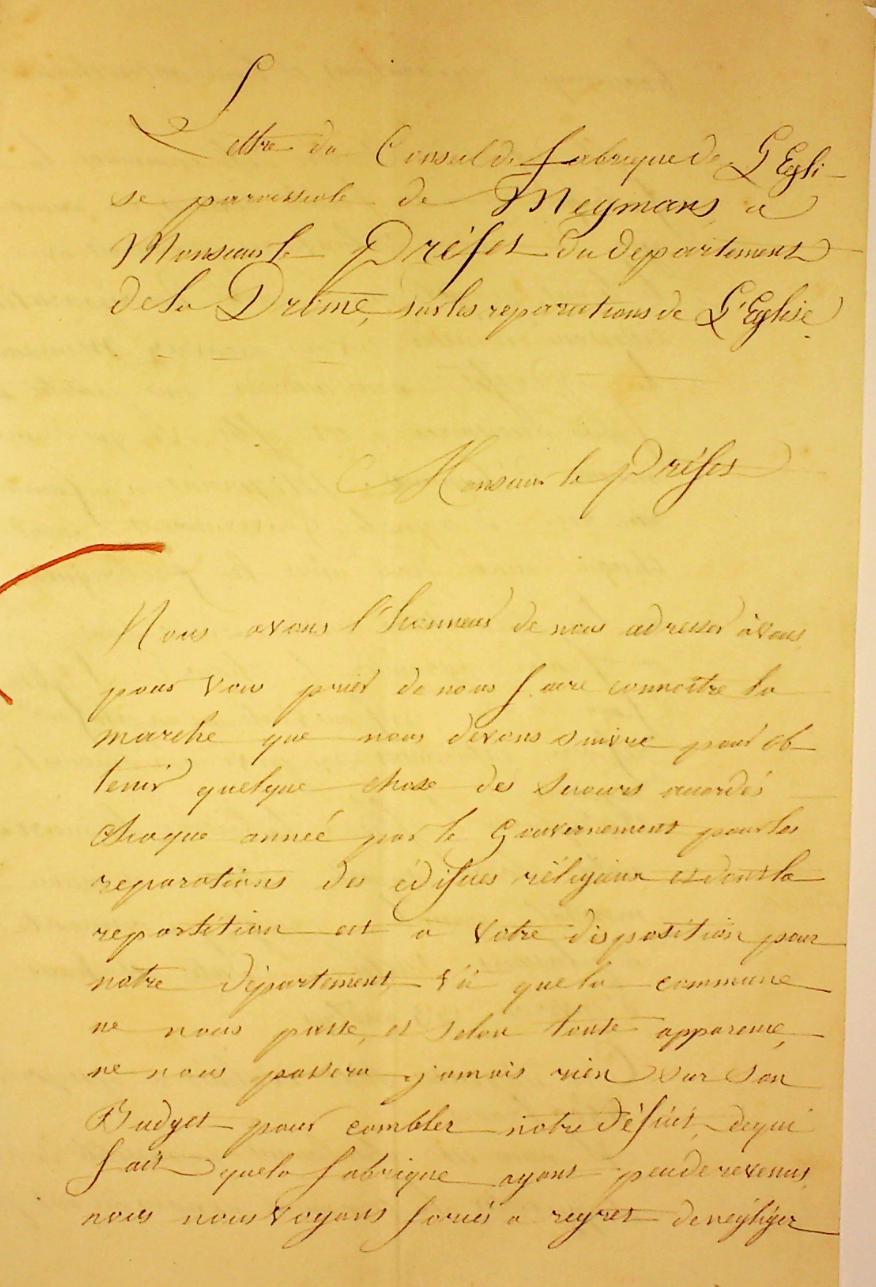 Lettre du Conseil de fabrique de L'Egli-
se paroissiale de Meymans, a
Monsieur le Préfet du departement
de la Drôme, sur les reparations de L'Eglise
Monsieur le Préfet
Nous avons l'honneur de nous adresser à vous
pour vous prier de nous faire connoitre la
marche que nous devons suivre pour ob
tenir quelque chose des secours accordés
chaque année par le Gouvernement pour les
reparations des édifices réligieux et dont la
repartition est a votre disposition pour
notre département, vû que la commune
ne nous passe, et selon toute apparence,
ne nous passera jamais rien sur son
Budget pour combler notre déficit, ce qui
fait que la fabrique ayant peu de revenus,
nous nous voyons forcés a regret de négliger